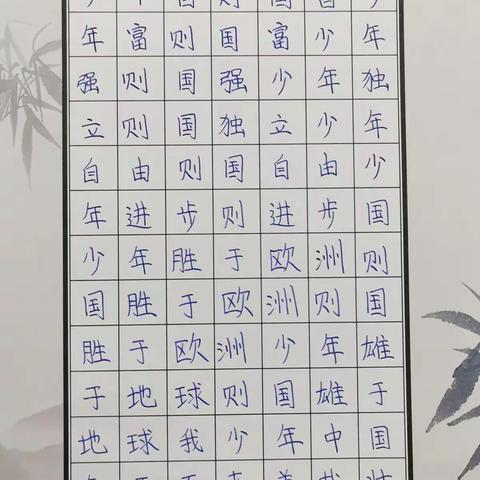 年富则国富少年
强则国强少年独
立则国独立少年
自由则国自由少
年进步则进步国
少年胜于欧洲则
国胜于欧洲则国
胜于欧洲少年雄
于地球则国雄于
地球我少年中国